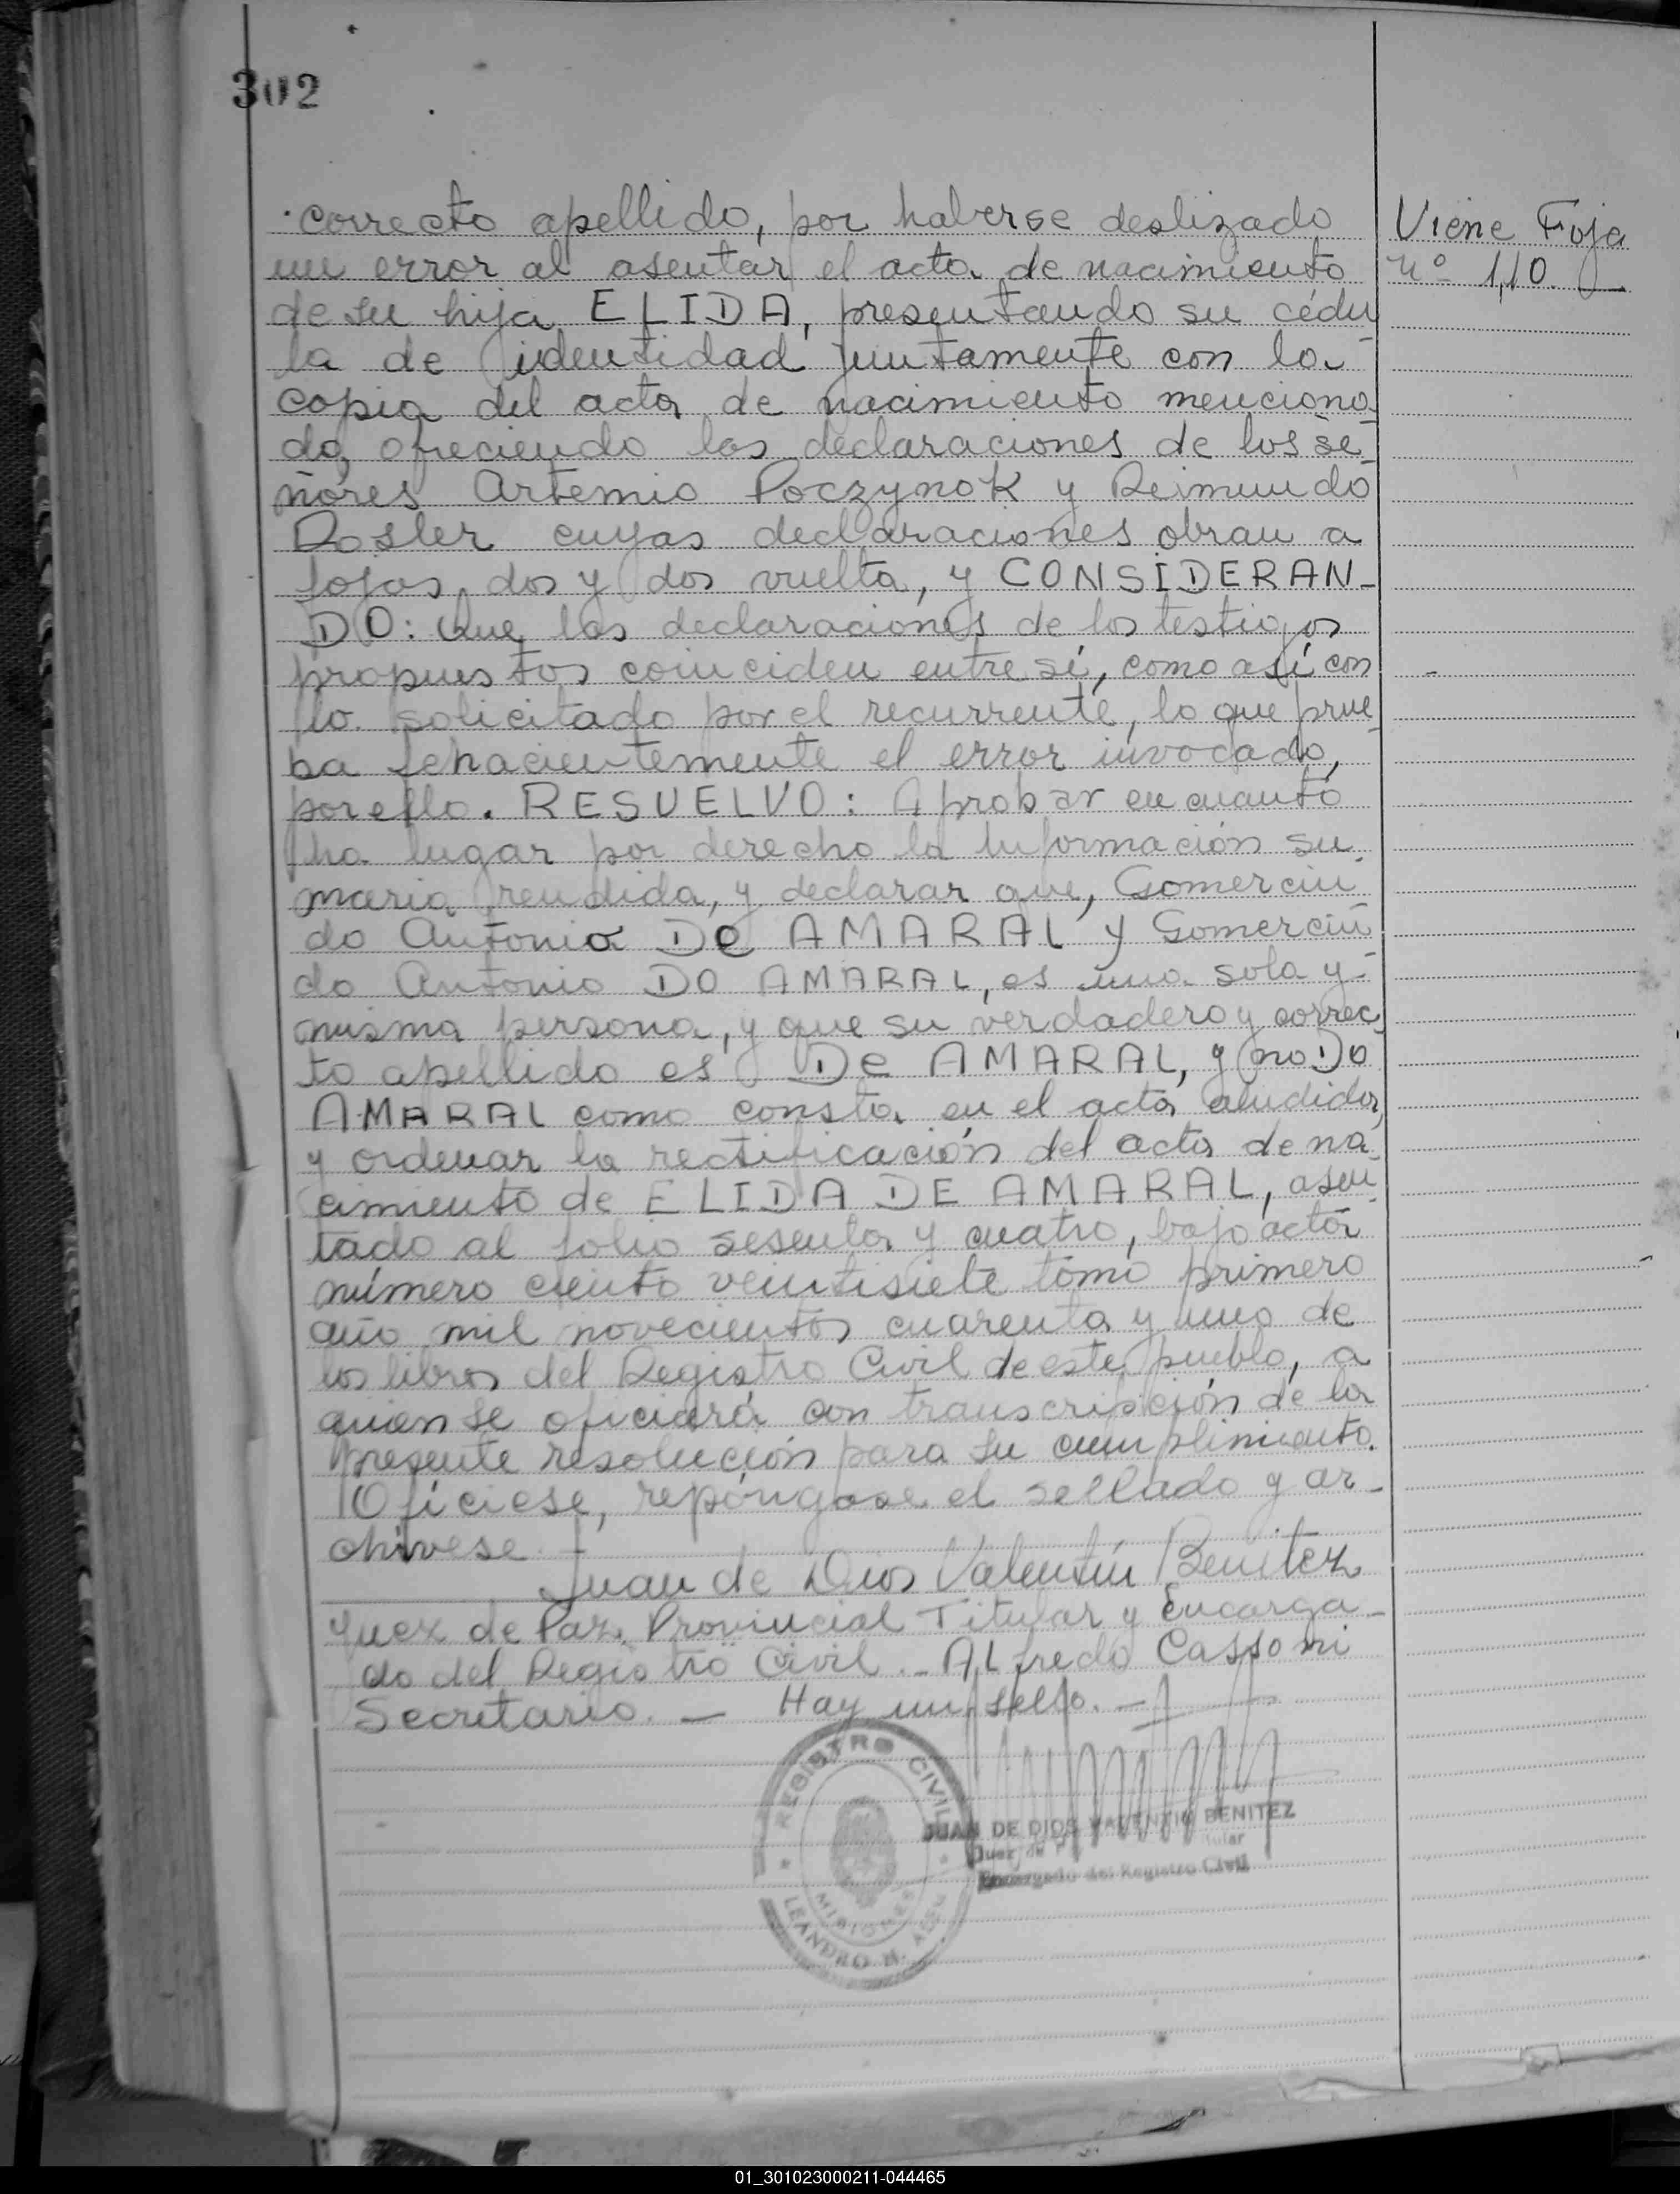 302
correcto apellido, por haberse deslizado
un error al asentar el acta de nacimiento
de su hija ELIDA, presentando su cédu
la de identidad juntamente con la
copia del acta de nacimiento menciona
da, ofreciendo las declaraciones de los se-
ñores Artemio Poczynok y Reimundo
Dosler cuyas declaraciones obran a
fojas dos y dos vuelta, y CONSIDERAN-
DO: Que las declaraciones de los testigos
propuestos coinciden entre sí, como así con
lo solicitado por el recurrente, lo que prue
ba fehacientemente el error invocado,
por ello. RESUELVO: Aprobar en cuanto
ha lugar por derecho la información su-
maria rendida, y declarar que, Gomercin
do Antonio De AMARAL y Gomercin
do Antonio DO AMARAL, es una sola y
misma persona, y que su verdadero y correc
to apellido es De AMARAL, y no Do
AMARAL como consta en el acta aludida,
y ordenar la rectificación del acta de na-
cimiento de ELIDA DE AMARAL, asen
tado al folio sesenta y cuatro, bajo acta
número ciento veintisiete tomo primero
año mil novecientos cuarenta y uno de
los libros del Registro Civil de este pueblo, a
quien se oficiará con transcripción de la
presente resolución para su cumplimiento.
Ofíciese, repóngase el sellado y ar-
chívese. -
Juan de Dios Valentín Benitez
Juez de Paz Provincial Titular y Encarga-
do del Registro Civil. - Alfredo Cassoni
Secretario. — Hay un sello. —
Viene Foja
Nº 110. —
REGISTRO CIVIL
MISIONES
LEANDRO N. ALEM
JUAN DE DIOS VALENTIN BENITEZ
Juez de P
Encargado del Registro Civil
01_301023000211-044465